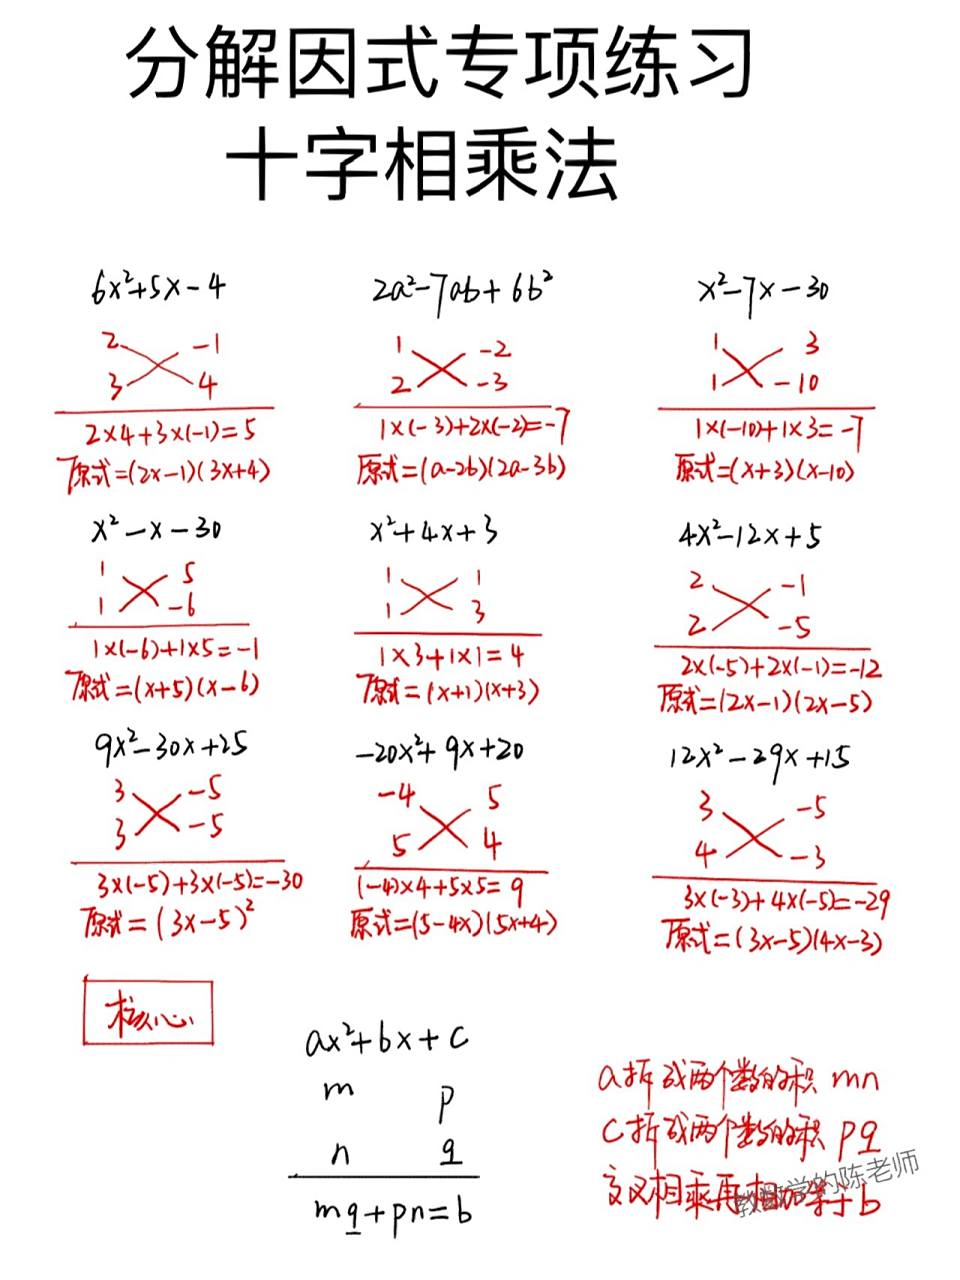 分解因式专项练习
十字相乘法
6x²+5x-4
2 -1
3 4
2×4+3×(-1)=5
原式=(2x-1)(3x+4)
2a²-7ab+6b²
1 -2
2 -3
1×(-3)+2×(-2)=-7
原式=(a-2b)(2a-3b)
x²-7x-30
1 3
1 -10
1×(-10)+1×3=-7
原式=(x+3)(x-10)
x²-x-30
1 5
1 -6
1×(-6)+1×5=-1
原式=(x+5)(x-6)
x²+4x+3
1 1
1 3
1×3+1×1=4
原式=(x+1)(x+3)
4x²-12x+5
2 -1
2 -5
2×(-5)+2×(-1)=-12
原式=(2x-1)(2x-5)
9x²-30x+25
3 -5
3 -5
3×(-5)+3×(-5)=-30
原式=(3x-5)²
-20x²+9x+20
-4 5
5 4
(-4)×4+5×5=9
原式=(5-4x)(5x+4)
12x²-29x+15
3 -5
4 -3
3×(-3)+4×(-5)=-29
原式=(3x-5)(4x-3)
核心
ax²+bx+c
m p
n q
mq+pn=b
a拆成两个数的积mn
c拆成两个数的积pq
交叉相乘再相加等于b
教数学的陈老师